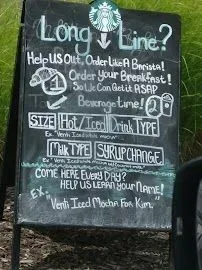 Long Line?
Help Us Out, Order Like A Barista!
1 Order your Breakfast!
So We Can Get it ASAP
Beverage time! 2
SIZE Hot/Iced Drink TYPE
Ex. "Venti Iced white mocha"
Milk TYPE SYRUP CHANGE
Ex. "Venti Iced white mocha
COME HERE EVERY DAY?
HELP US LEARN YOUR NAME!
EX:
"Venti Iced Mocha For Kim."